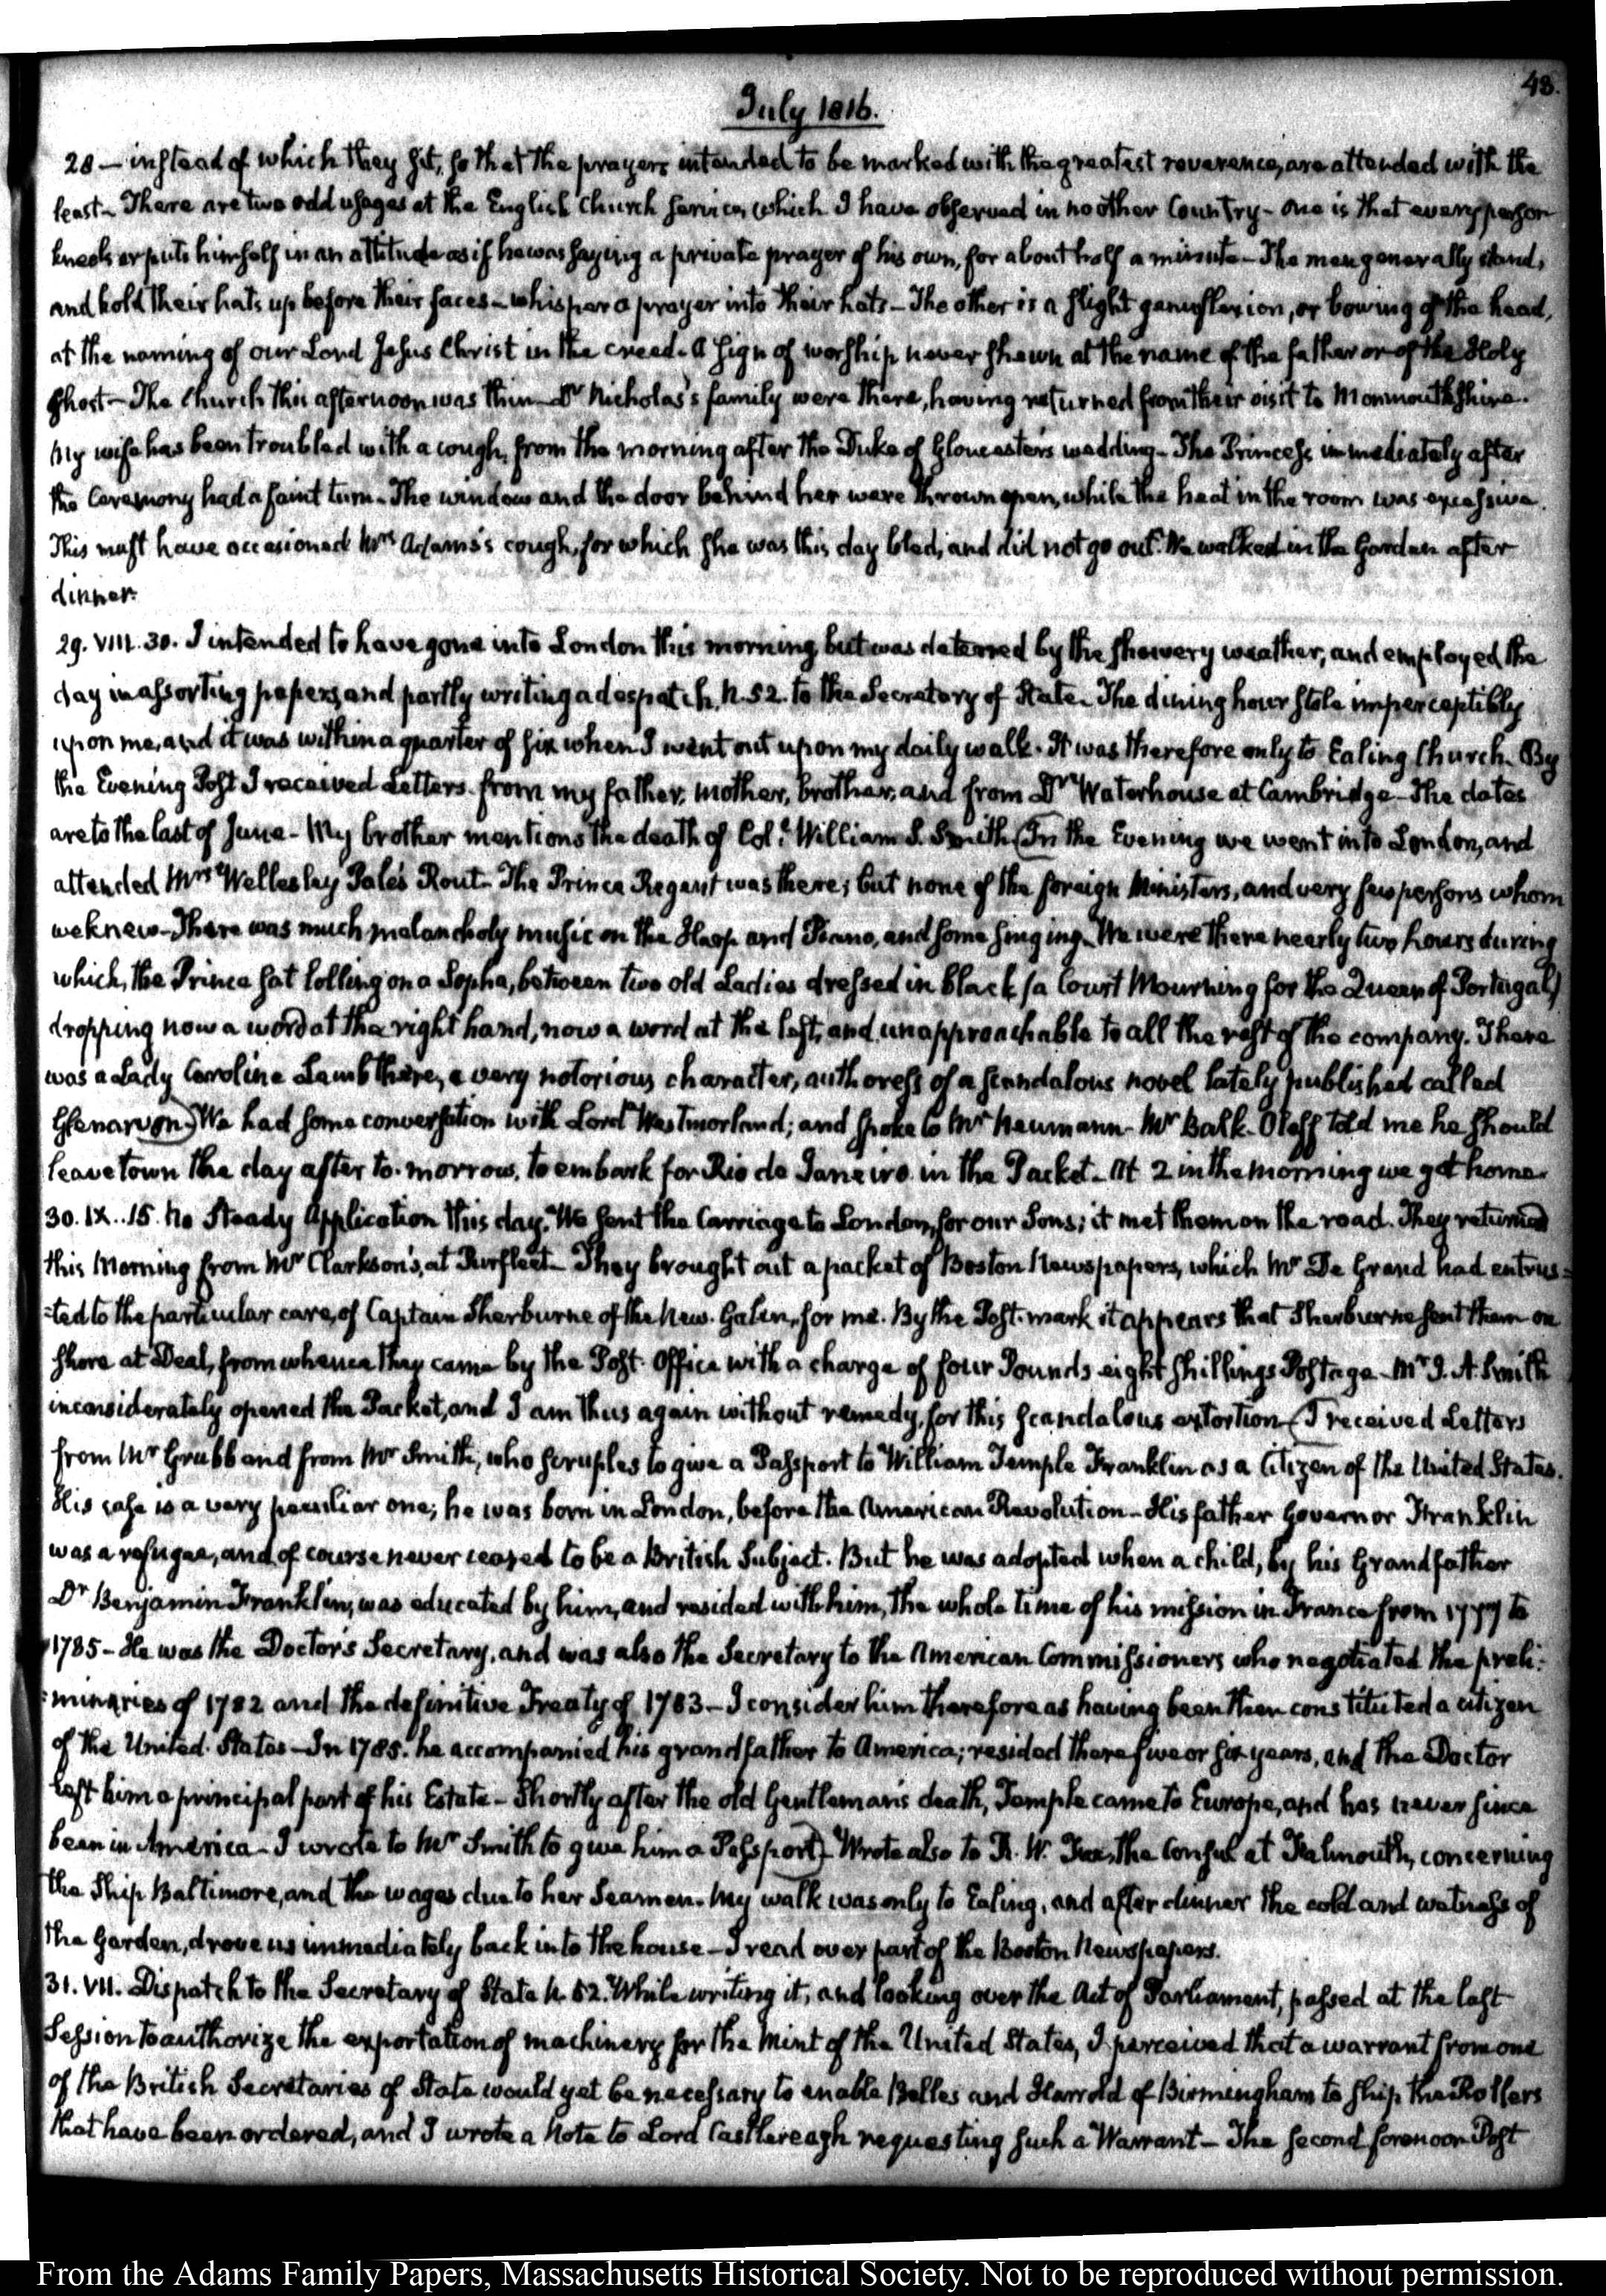 48.
July 1816.
28 — instead of which they sit, so that the prayers intended to be marked with the greatest reverence, are attended with the
least - There are two odd usages at the English Church service, which I have observed in no other Country - one is that every person
kneels or puts himself in an attitude as if he was saying a private prayer of his own, for about half a minute - The men generally stand,
and hold their hats up before their faces - whisper a prayer into their hats - The other is a slight genuflexion, or bowing of the head,
at the naming of our Lord Jesus Christ in the creed. A sign of worship never shewn at the name of the father or of the Holy
Ghost - The Church this afternoon was thin - Dr Nicholas's family were there, having returned from their visit to Monmouthshire.
My wife has been troubled with a cough, from the morning after the Duke of Gloucester's wedding - The Princess immediately after
the Ceremony had a faint turn - The window and the door behind her were thrown open, while the heat in the room was excessive.
This must have occasioned Mrs Adams's cough, for which she was this day bled, and did not go out. We walked in the Garden after
dinner.
29. VIII. 30. I intended to have gone into London this morning, but was deterred by the showery weather, and employed the
day in assorting papers, and partly writing a despatch, N. 52. to the Secretary of State. The dining hour stole imperceptibly
upon me, and it was within a quarter of six when I went out upon my daily walk. It was therefore only to Ealing Church. By
the Evening Post I received Letters from my father, mother, brother, and from Dr Waterhouse at Cambridge - The dates
are to the last of June - My brother mentions the death of Coll. William S. Smith (In the Evening we went into London, and
attended Mrs Wellesley Pole's Rout - The Prince Regent was there; but none of the foreign Ministers, and very few persons whom
we knew - There was much melancholy music on the Harp and Piano, and some singing. We were there nearly two hours during
which, the Prince sat lolling on a Sopha, between two old Ladies dressed in black (a Court Mourning for the Queen of Portugal)
dropping now a word at the right hand, now a word at the left, and unapproachable to all the rest of the company. There
was a Lady Caroline Lamb there, a very notorious character, authoress of a scandalous novel lately published called
Glenarvon) We had some conversation with Lord Westmorland; and spoke to Mr Neumann - Mr Balk-Poleff told me he should
leave town the day after to-morrow, to embark for Rio de Janeiro in the Packet - At 2 in the morning we got home.
30. IX. 15. No Steady Application this day. We sent the Carriage to London, for our Sons; it met them on the road. They returned
this Morning from Mr Clarkson's, at Purfleet - They brought out a packet of Boston Newspapers, which Mr De Grand had entrus=
=ted to the particular care, of Captain Sherburne of the New-Galen, for me. By the Post-mark it appears that Sherburne sent them on
shore at Deal, from whence they came by the Post-Office with a charge of four Pounds eight shillings Postage - Mr J. A. Smith
inconsiderately opened the Packet, and I am thus again without remedy, for this scandalous extortion (I received Letters
from Mr Grubb and from Mr Smith, who scruples to give a Passport to William Temple Franklin as a Citizen of the United States.
His case is a very peculiar one; he was born in London, before the American Revolution - His father Governor Franklin
was a refugee, and of course never ceased to be a British Subject. But he was adopted when a child, by his Grandfather
Dr Benjamin Franklin, was educated by him, and resided with him, the whole time of his mission in France from 1777 to
1785 - He was the Doctor's Secretary, and was also the Secretary to the American Commissioners who negotiated the preli=
=minaries of 1782 and the definitive Treaty of 1783 - I consider him therefore as having been then constituted a citizen
of the United States - In 1785. he accompanied his grandfather to America; resided there five or six years, and the Doctor
left him a principal part of his Estate - Shortly after the old Gentleman's death, Temple came to Europe, and has never since
been in America - I wrote to Mr Smith to give him a Passport) Wrote also to R. W. Fox, the Consul at Falmouth, concerning
the Ship Baltimore, and the wages due to her Seamen. My walk was only to Ealing, and after dinner the cold and wetness of
the Garden, drove us immediately back into the house - I read over part of the Boston Newspapers.
31. VII. Dispatch to the Secretary of State N. 52. While writing it, and looking over the Act of Parliament, passed at the last
Session to authorize the exportation of machinery for the Mint of the United States, I perceived that a warrant from one
of the British Secretaries of State would yet be necessary to enable Belles and Harrold of Birmingham to ship the Rollers
that have been ordered, and I wrote a Note to Lord Castlereagh requesting such a Warrant - The second forenoon Post
From the Adams Family Papers, Massachusetts Historical Society. Not to be reproduced without permission.